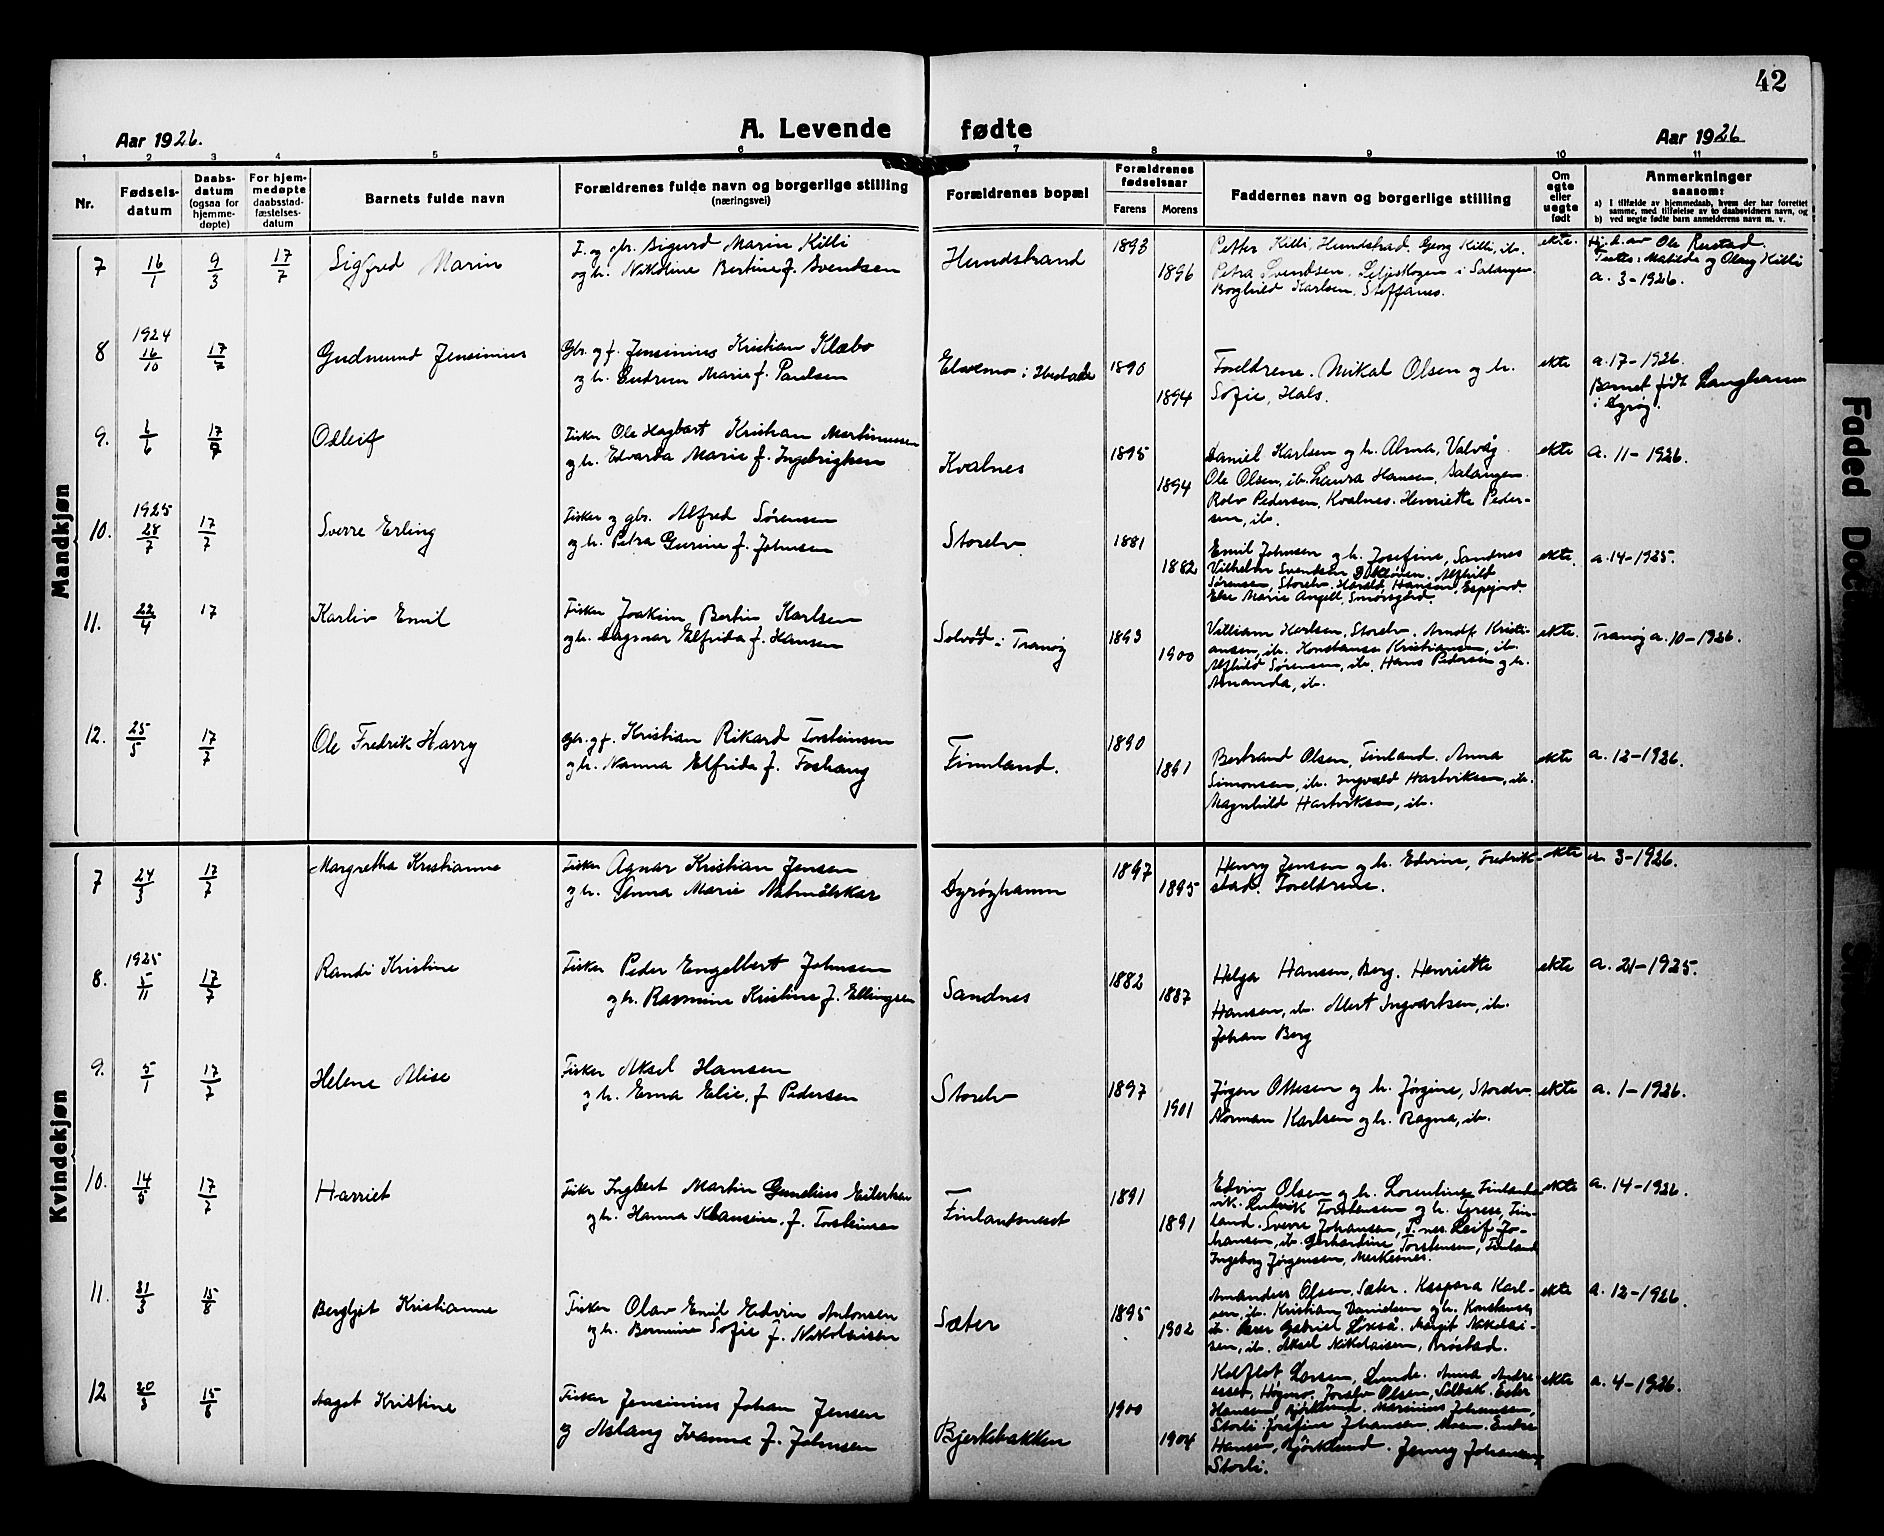 42
Aar 1926.
A. Levende fødte
Aar 1926
1 2 3 4 5 6 7 8 9 10 11
Nr.
Fødsels-
datum
Daabs-
datum
(ogsaa for
hjemme-
døpte)
For hjem-
medøpte
daabsstad-
fæstelses-
datum
Barnets fulde navn
Forældrenes fulde navn og borgerlige stilling
(næringsvei)
Forældrenes bopæl
Forældrenes
fødselsaar
Farens Morens
Faddernes navn og borgerlige stilling
Om
egte
eller
uegte
født
Anmerkninger
saasom:
a) I tilfælde av hjemmedaab, hvem der har forrettet
samme, med tilføielse av to daabsvidners navn, og
b) ved uegte fødte barn anmelderens navn m. v.
Mandkjøn
7 16/1 9/3 17/7 Sigfred Marin
F. og gbr. Sigurd Marin Killi
og h. Nikoline Bertine f. Svendsen
Hundstrand
1893
1896
Petter Killi, Hundstrad. Georg Killi, ib.
Petra Svendsen, Seljeskogen i Salangen
Borghild Karlsen, Steffanes.
ekte.
Hj. d. av Ole Rustad.
Testes: Matilde og Olaug Killi
a. 3-1926.
8 1924 16/10 17/7 Gudmund Jensinius
Gbr. og f. Jensinius Kristian Klæbo
og h. Gudrun Marie f. Paulsen
i Ibestad
1890
1894
Foreldrene. Mikal Olsen og h.
Sofie, Hals.
ekte
a. 17-1926.
Barnet født Langhamn
i Dyrøy.
9. 6/6 17/7 Odleif
Fisker Ole Hagbart Kristian Martinussen
og h. Edvarda Marie f. Ingebrigtsen
Kvalnes
1895
1894
Daniel Karlsen og h. Alma, Valvåg.
Ole Olsen, ib. Laura Hansen, Salangen.
Rolv Pedersen, Kvalnes. Henriette Peder-
sen, ib.
ekte
a. 11-1926.
10. 1925 28/7 17/7 Sverre Erling
Fisker og gbr. Alfred Sørensen
og h. Petra Gurine f. Johnsen
Storelv
1881
1882
Emil Johnsen og h. Josefine, Sandnes
Vilhelm Svendsen, Alfhild
Sørensen, Storelv, Harald Hansen, Espejord.
Else Marie Angell, Smørsgård.
ekte.
a. 14-1925.
11. 22/4 17 Karliv Emil
Fisker Joakim Bertin Karlsen
og h. Dagmar Elfrida f. Hansen
i Tranøy
1893
1900
Villiam Karlsen, Storelv. Arndf Kristi-
ansen, ib. Konstanse Kristiansen, ib.
Alfhild Sørensen, ib. Hans Pedersen og h.
Amanda, ib.
ekte.
Tranøy a. 10-1926.
12. 25/5 17/7 Ole Fredrik Harry
gbr. og f. Kristian Rikard Torsteinsen
og h. Nanna Elfrida f. Foshaug
Finnland.
1890
1891
Bertrand Olsen, Finland. Anna
Simonsen, ib. Ingvald Hartviksen, ib.
Magnhild Hartviksen, ib.
ekte
a. 12-1926.
Kvindekjøn
7 24/3 17/7 Margretha Kristianne
Fisker Agnar Kristian Jensen
og h. Anna Marie Natmålskar
Dyrøyhamn
1897
1895
Henry Jensen og h. Edvine, Fredrik-
stad. Foreldrene.
ekte
a. 3-1926.
8. 1925 5/11 17/7 Randi Kristine
Fisker Peder Engelbert Johnsen
og h. Rasmine Kristine f. Ellingsen
Sandnes
1882
1887
Helga Hansen, Berg. Henriette
Hansen, ib. Albert Ingvartsen, ib.
Johan Berg
ekte
a. 21-1925.
9. 5/1 17/7 Helene Alise
Fisker Aksel Hansen
og h. Erna Elie, f Pedersen
Storelv
1897
1901
Jørgen Ottesen og h. Jørgine, Storelv.
Norman Karlsen og h. Ragna, ib.
ekte
a. 1-1926.
10. 14/5 17/7 Harriet
Fisker Ingbert Martin Gunelius Eilertsen
og h. Hanna Klausine, f. Torsteinsen
Finlandsnest
1891
1891
Edvin Olsen og h. Lorentine, Finlands-
vik. Ludvik Torstensen og h. Terese, Fin-
land. Sverre Johansen, Leif Jo-
hansen, ib. Gerhardine Torstensen, Finland
Ingeborg Jørgensen, Merkesnes.
ekte
a. 14-1926.
11. 31/3 15/8 Bergljot Kristianne
Fisker Olav Emil Edvin Antonsen
og h. Bernine Sofie f. Nikolaisen
Sæter
1895
1902
Amandus Olsen, Sæter. Kaspara Karl-
sen, ib. Kristian Danielsen og h. Konstanse,
ib. Gabriel Loeså. Margit Nikolai-
sen, ib. Aksel Nikolaisen, Brøstad.
ekte
a. 12-1926.
12 20/3 15/8 Aagot Kristine
Fisker Jensinius Johan Jensen
og Aslaug Ivanna f. Johnsen
Bjerkebakken
1900
1904
Larsen, Lunde. Anna Andre-
assen, Høgmo. Josefe Olsen, Ester
Hansen, Bjørklund. Marinius Johansen,
Storli. Josefine Johansen, Moen. Endre
Hansen, Bjørklund. Jenny Johansen,
Storli.
ekte
a. 4-1926.
Faded Doc